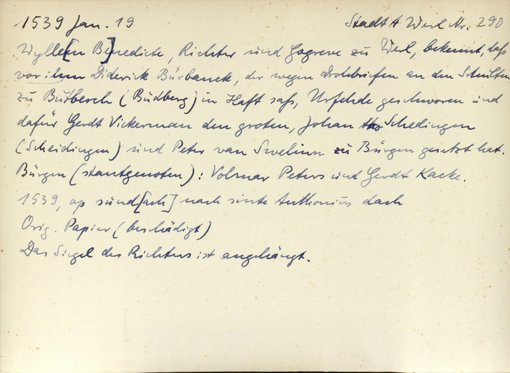 1539 Jan. 19 Stadt A Werl Nr. 290
Wylle[n B]enedicte, Richter und Gogreve zu Werl, bekennt, daß
vor ihm Diderick Bürbanck, der wegen Drohbriefen an den Schulten
zu Butberch (Büdberg) in Haft saß, Urfehde geschworen und
dafür Gerdt Vickerman den groten, Johan tho Schedingen
(Scheidingen) und Peter van Swelinn zu Bürgen gesetzt hat.
Bürgen (stantgenoten): Volmar Peters und Gerdt Kacke.
1539, up sund[ach] nach sinte Anthonius dach
Orig. Papier (beschädigt)
Das Siegel des Richters ist angehängt.